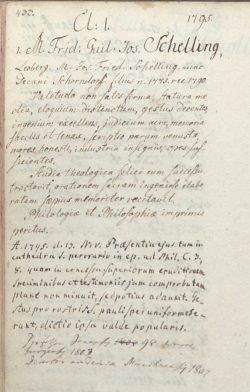 433.
Cl. I. 1795.
1. M. Frid. Guil. Jos. Schelling,
Leoberg. M. Jos. Fried. Schelling, nunc
Decani Schorndorf. filius n. 1775. rec. 1790.
Valetudo non satis firma, statura me-
dia, eloquium distinctum, gestus decentes,
ingenium excellens, judicium acre, memoria
facilis et tenax, scriptio parum venusta,
mores honesti, industria insignis, opes suf-
ficientes.
Studia theologica felici cum successu
tractavit, orationem sacram ingeniose elabo-
ratam memoriter recitavit.
Philologiae et Philosophiae imprimis
peritus.
A. 1795. d. 13. Nov. Praesentia ejus tum in
cathedra s. perorario in ep. ad Phil. C. 3,
8. quam in consessu superiorum eruditionem
et testimoniis jam comprobatam
plane non minuit, sed potius adauxit. Ge-
stus pro rostris paulisper uniformes e-
rant, dictio ipsa valde popularis.
98
1803
1807